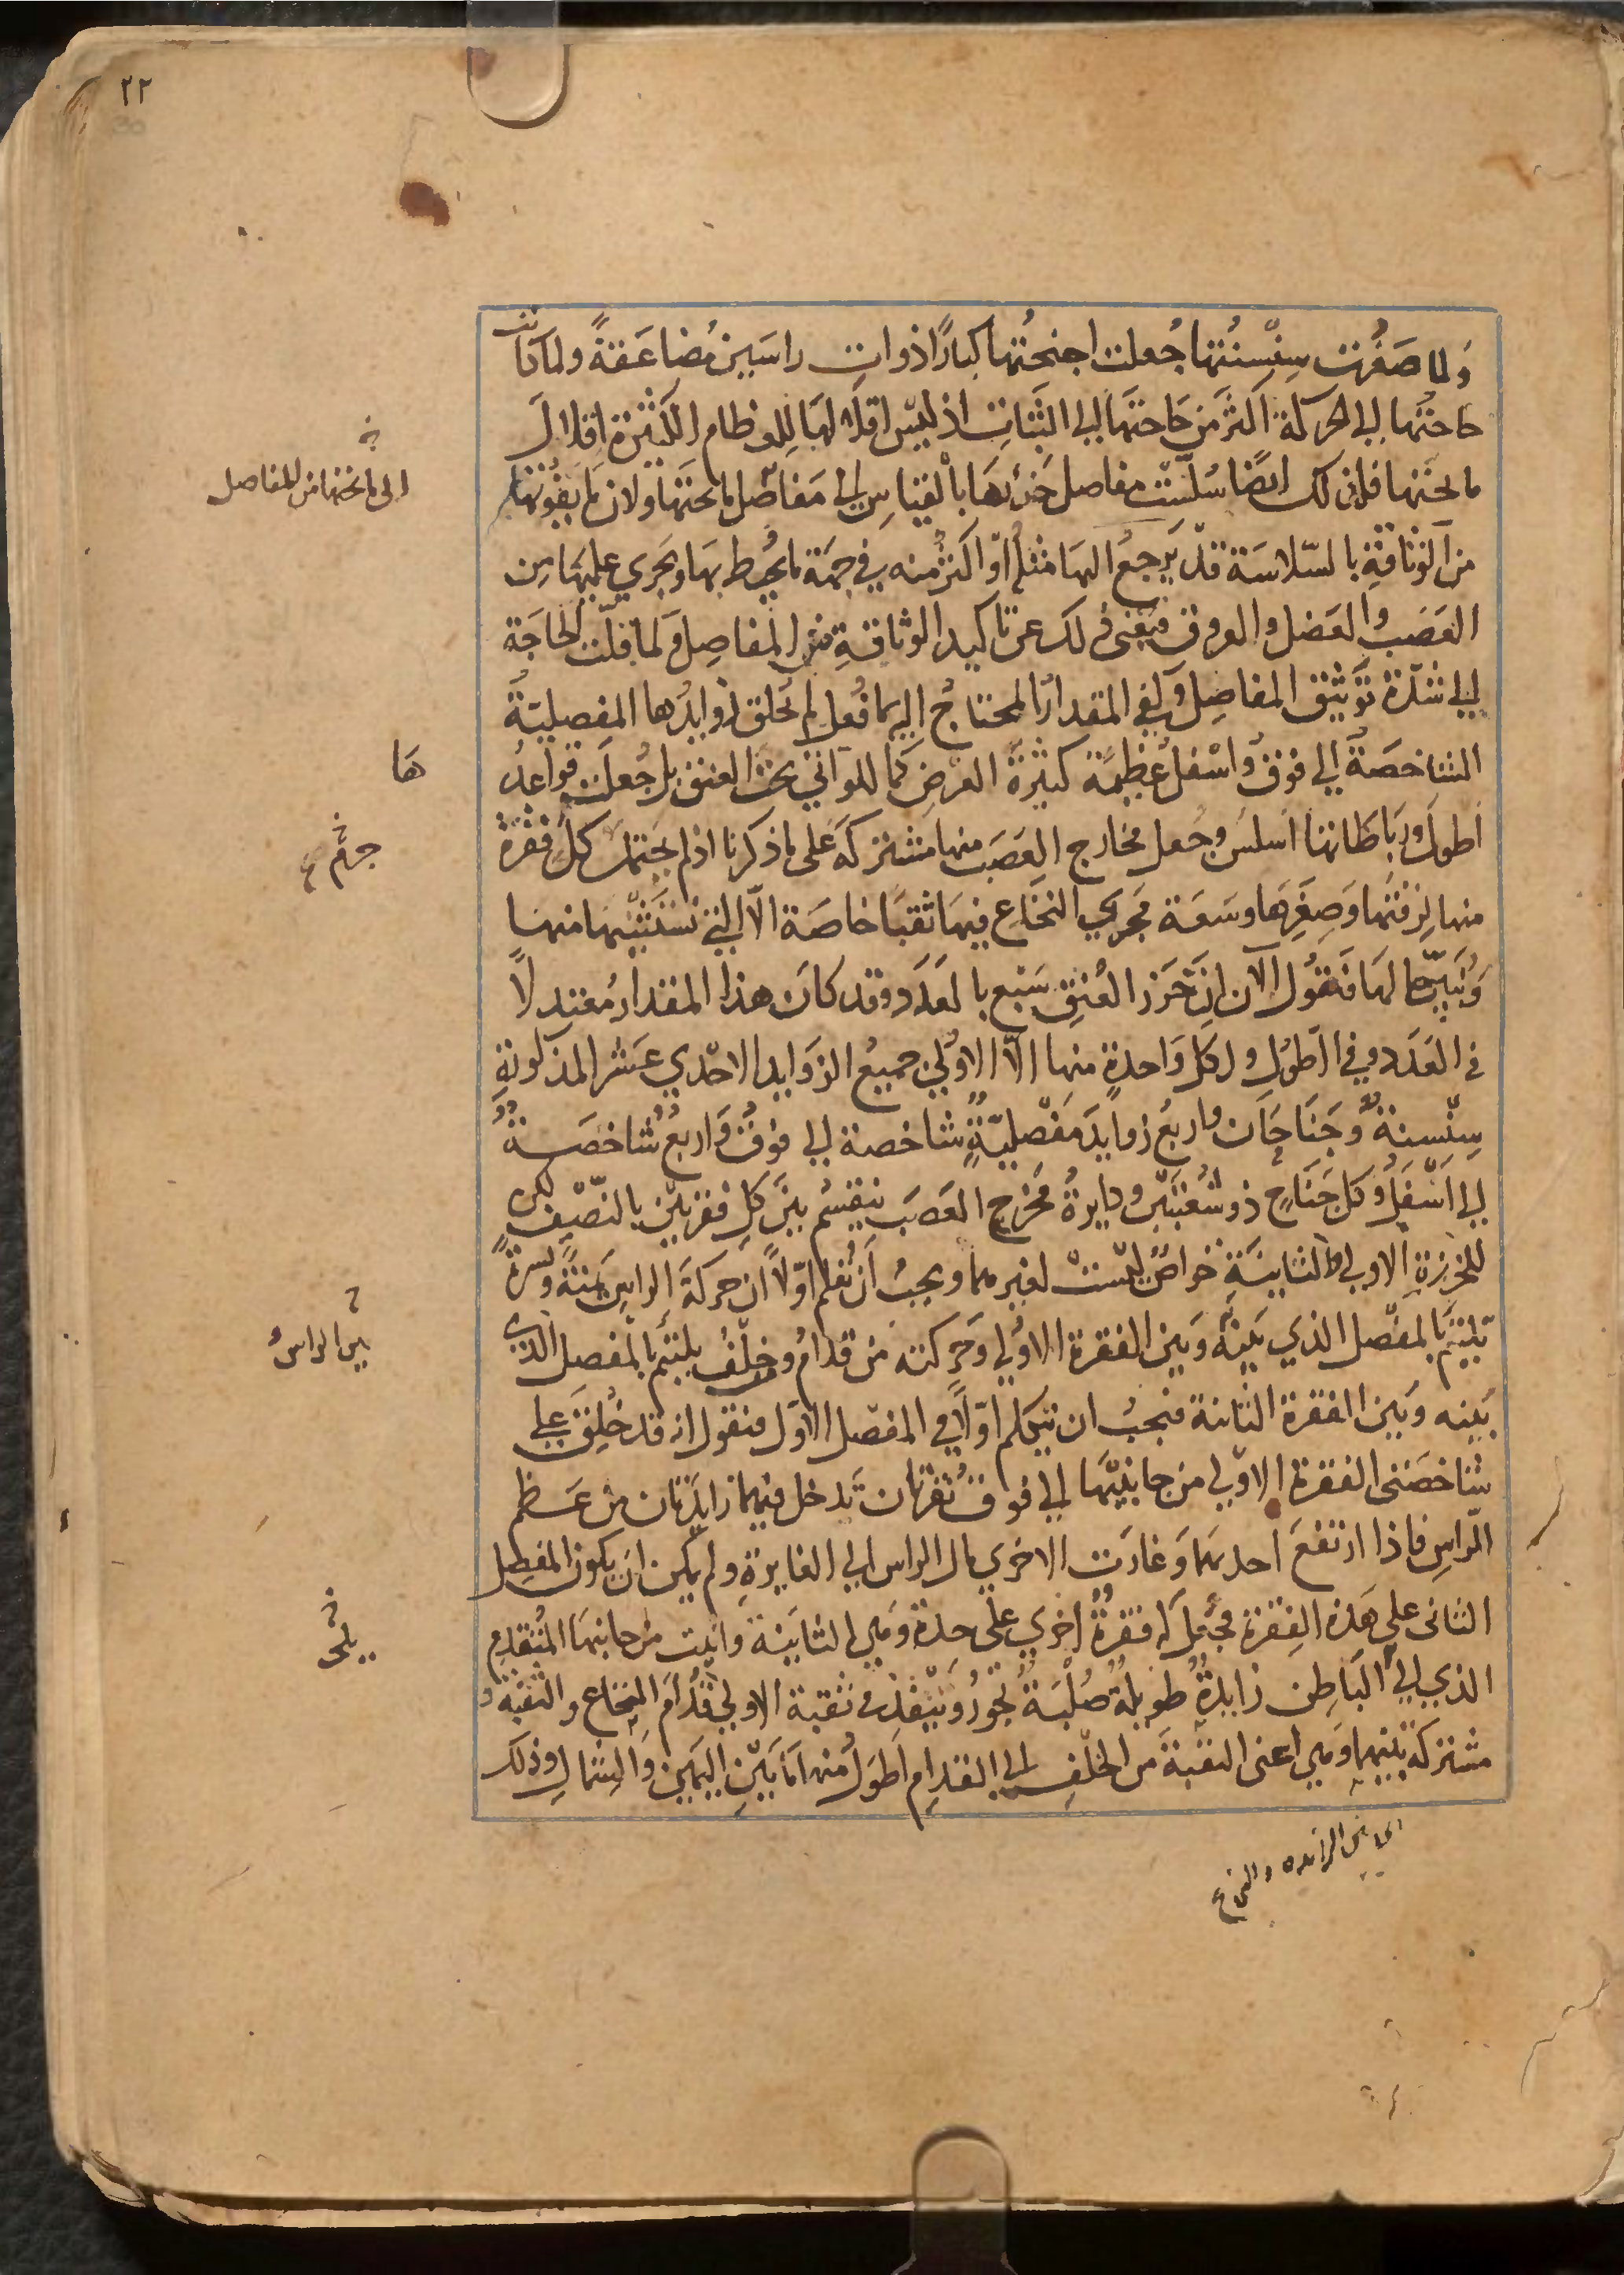 ٢٢
ولما صَغُرت سِنْسِنتُها جُعلت اجنحتُها كبارًا ذوات راسَين مُضاعَفةً ولما كانت
حاجتُها الى الحركة اكثرَ من حَاجتها الى الثبات اذ ليس اقلالها للعظام الكثيرة اقلالَ
ما تحتها فلذلك ايضًا سَلِسَت مفاصل خرزها بالقياس الى مَفاصل ما تحتها ولان ما يفوتها
من الوثاقة بالسّلاسَة قد يَرجعُ اليها مثله او اكثر منه في جهة ما يُحيط بها ويَجري عليها مِن
العَصَب والعَضل والعروق فيُغنى ذلك عن تاكيد الوثاقةِ في المفاصِل ولما قلّت الحاجَة
الى شدّة تَوثيق المفاصِل وكفى المقدارُ المحتاجُ اليه بما فُعل لم تُخلق زوايدُها المفصليّةُ
الشاخصَةُ الى فوق واسْفل عَظيمَة كثيرةَ العرض كما للواتي تحت العنق بل جُعلت قواعدُ
ها
اطولَ ورباطاتها اسلسَ وجعل مخارج العَصَب منها مشتركةً على ما ذكرنا اذ لم يَحتمل كل فقرة
منها لِرقّتها وَصِغَرِها وسَعَة مَجرى النخاع فيها ثقبًا خاصَة الّا التي نَسْتَثنيها منها
ونُبَيّن حالها فَنقُول الآن اِنّ خَرَز العُنق سَبْع بالعَدَد وقد كانَ هذا المقدارُ مُعتدلًا
في العَدَد وفي الطول ولكل وَاحدةٍ منها الّا الاولى جميعُ الزوايد الاحدي عَشر المذكورةِ
سِنْسِنةٌ وجَنَاحَان واربَعُ زوايدَ مَفْصليّةٍ شاخصة الى فوق وَاربعُ شاخصَةٌ
الى اَسْفل وكل جَنَاح ذو شُعْبَتَين ودايرةُ مَخرج العَصَب يَنقسمُ بَيْنَ كلّ فقرتَين بالنّصْف لكن
للخرزةِ الاولى والثانيَةِ خواصُّ ليْسَتْ لغيرهما ويجبُ ان تُعلم اوّلًا ان حركةَ الراس يَمْنةً ويَسرةً
تَلتئم بالمفْصل الذي بَيْنهُ وَبَين الفقرة الاولى وَحركته من قدام وخلْفُ يَلتئم بالمفصل الذي
بَينه وبَين الفقرة الثانية فيجبُ ان نَتكلم اوّلًا في المفصل الاوّل فنقول انه قد خُلِق على
شاخصَتي الفقرة الاولى من جانبَيْها الى فوق نُقرتان تَدخل فيهما زايدَتان من عَظم
الرّاسِ فاذا ارتفعَ احديهما وَغارَت الاخرى مال الراس الى الغايرةِ ولم يكن ان يكون المفصِل
الثاني على هَذه الفِقرة فجُعل له فقرةٌ اخرى على حِدة وهي الثانيَة وانبت من جانبها المُتقدم
الذي الى الباطن زايدةٌ طويلةٌ صُلْبَةٌ تجوزُ وَتَنْفذ في ثقبة الاولى قُدّامَ النخاع والثقبة
مشتركة بَينهما وَهي اعنى الثقبةَ من الخلْفِ الى القدام اطوَلُ منها ما بَيْن اليمين وَالشمال وذلك
الى ما تحتها من المفاصل
بين الراس